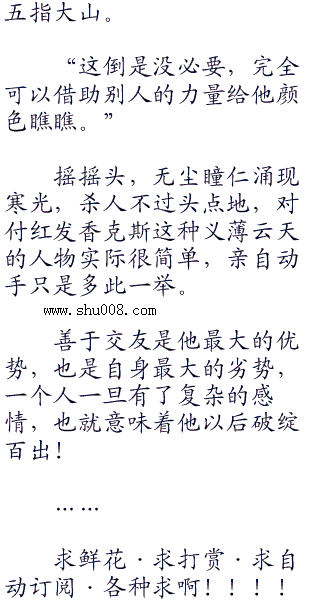 五指大山。
“这倒是没必要，完全
可以借助别人的力量给他颜
色瞧瞧。”
摇摇头，无尘瞳仁涌现
寒光，杀人不过头点地，对
付红发香克斯这种义薄云天
的人物实际很简单，亲自动
手只是多此一举。
www.shu008.com
善于交友是他最大的优
势，也是自身最大的劣势，
一个人一旦有了复杂的感
情，也就意味着他以后破绽
百出！
……
求鲜花·求打赏·求自
动订阅·各种求啊！！！！